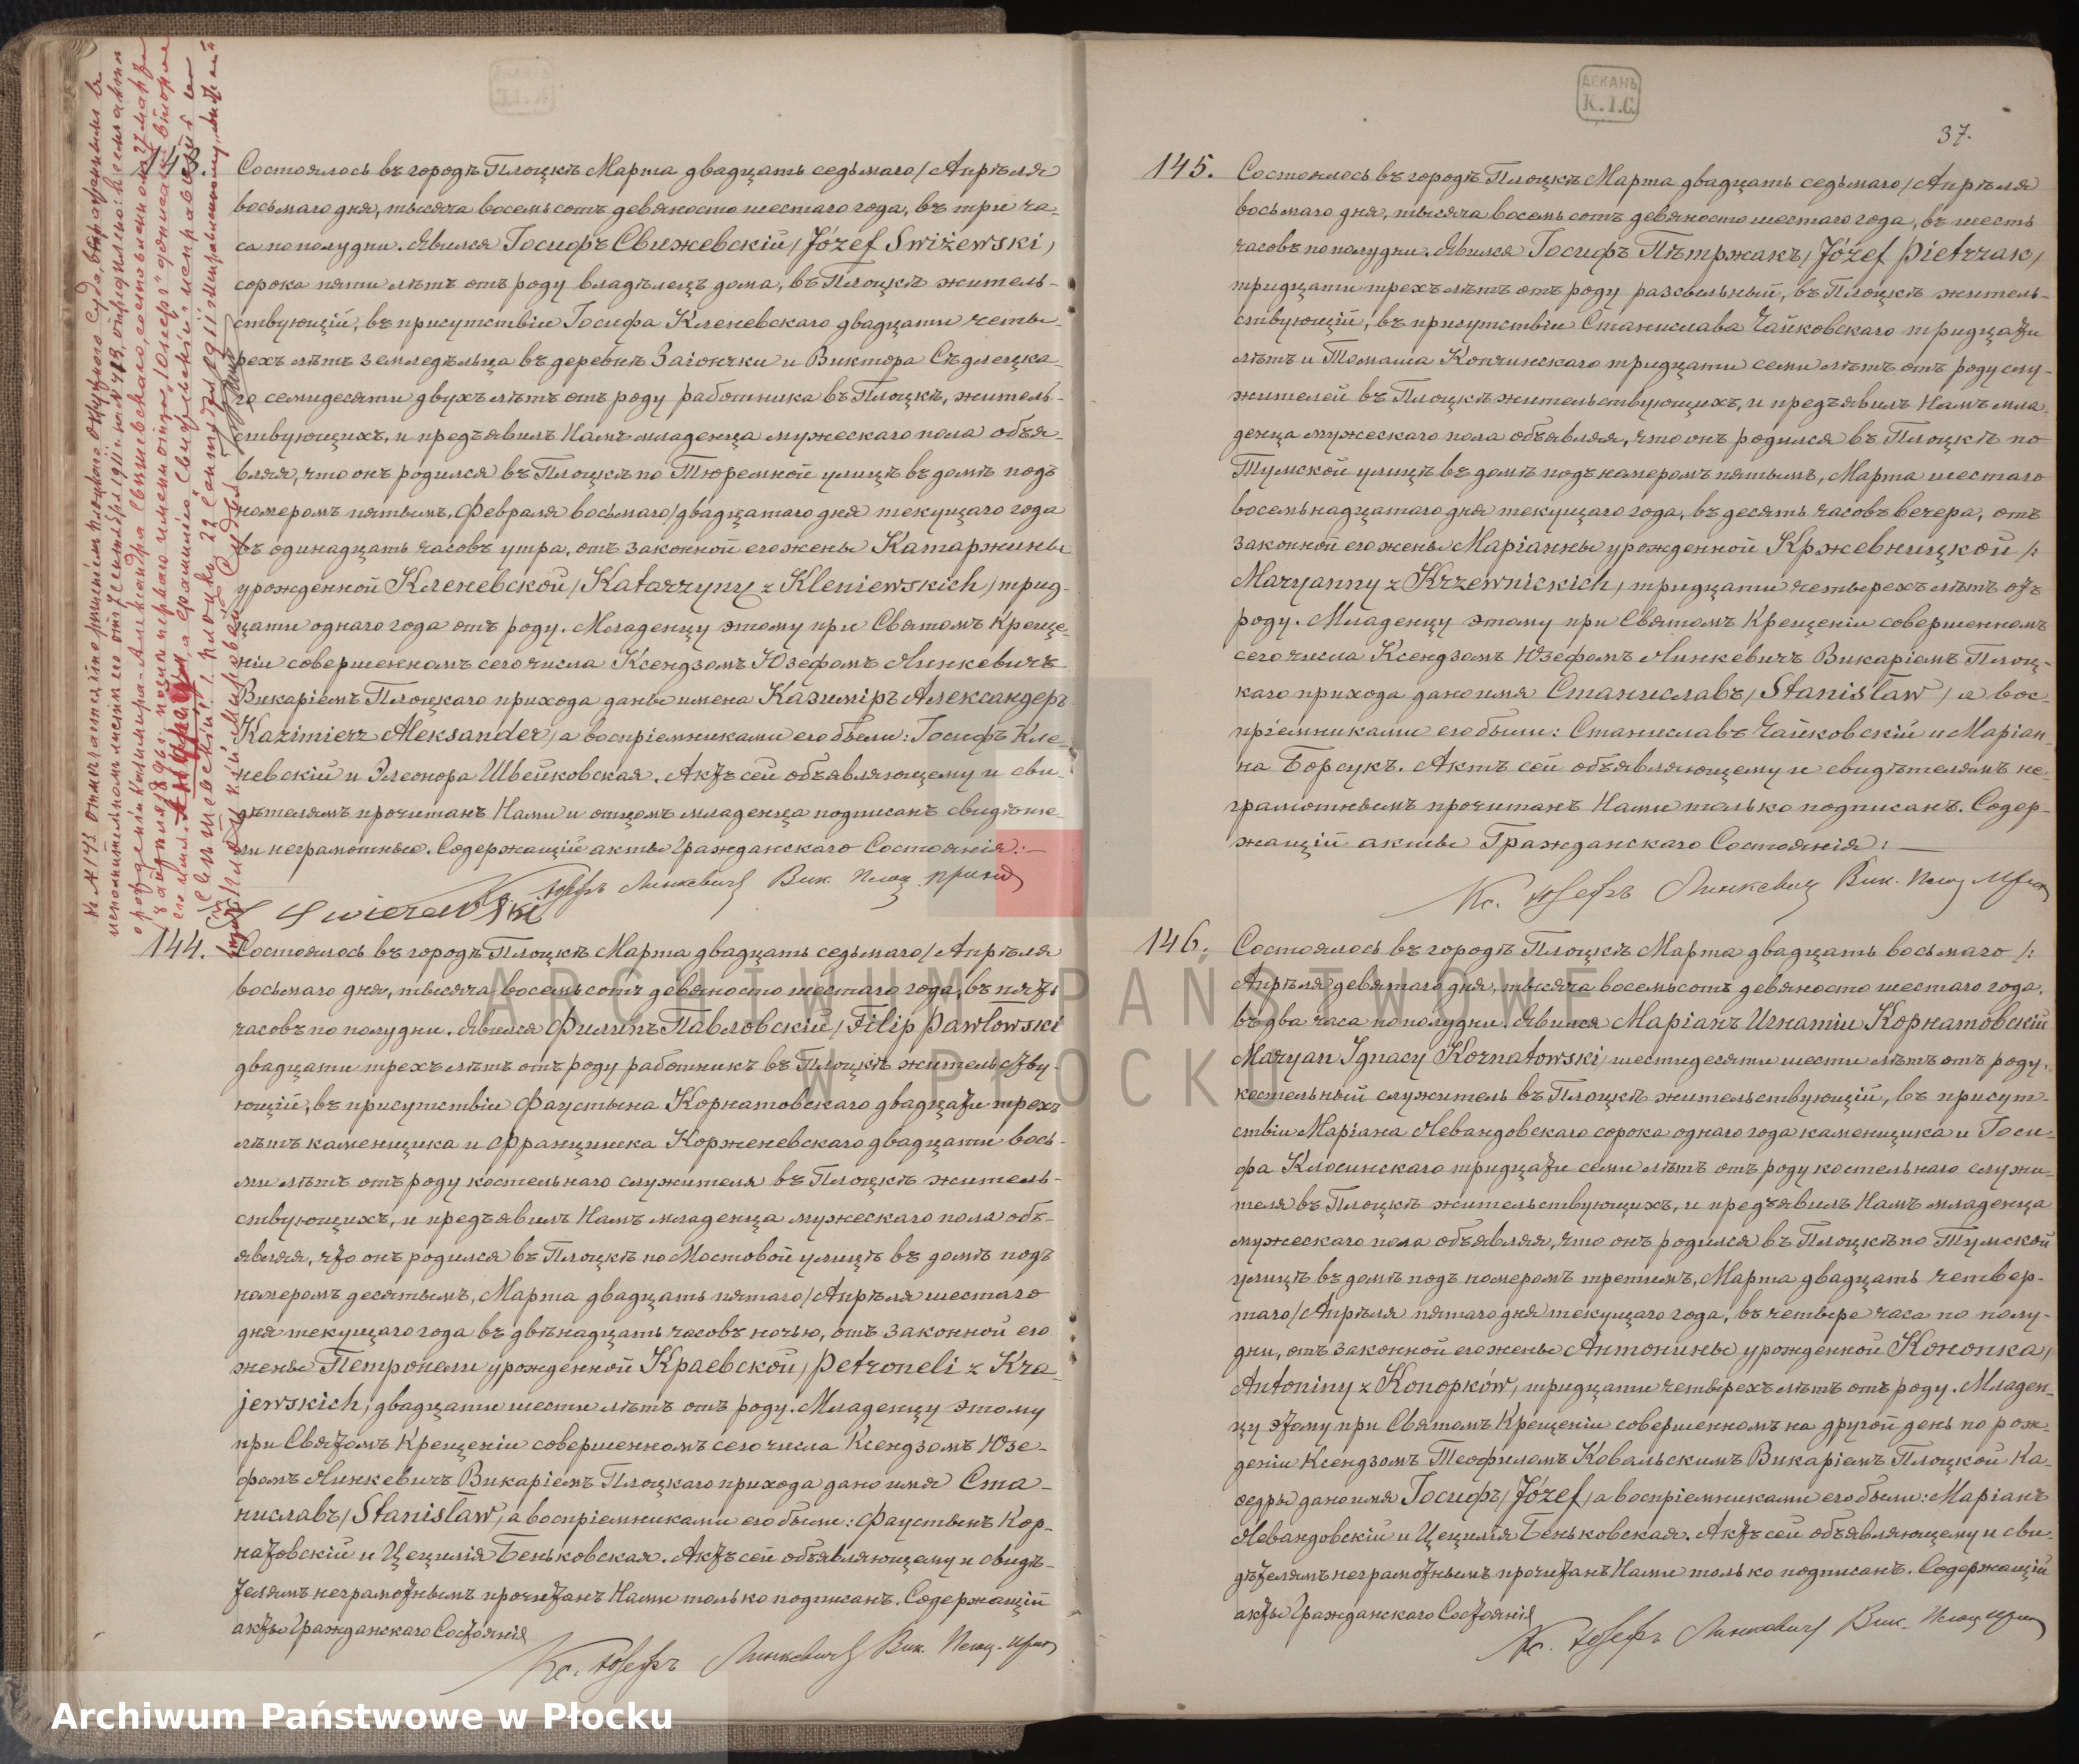 143.
Состоялось въ городѣ Плоцкѣ Марта двадцать седьмаго / Апрѣля
восьмаго дня, тысяча восемьсотъ девяносто шестаго года, въ три ча-
са по полудни. Явился Іосифъ Свижевскій / Józef Swiżewski /
сорока пяти лѣтъ отъ роду владѣлецъ дома, въ Плоцкѣ житель-
ствующій, въ присутствіи Іосифа Кленевскаго двадцати четы-
рехъ лѣтъ земледѣльца въ деревнѣ Загончки и Виктора Сѣдлецка-
го семидесяти двухъ лѣтъ отъ роду работника въ Плоцкѣ, житель-
ствующихъ, и предъявилъ Намъ младенца мужескаго пола объя-
вляя, что онъ родился въ Плоцкѣ по Тюремной улицѣ въ домѣ подъ
номеромъ пятымъ, Февраля восьмаго / двадцатаго дня текущаго года
въ одинадцать часовъ утра, отъ законной его жены Катаржины
урожденной Кленевской / Katarzyny z Kleniewskich / трид-
цати одного года отъ роду. Младенцу этому при Святомъ Креще-
ніи совершенномъ сего числа Ксендзомъ Юзефомъ Линкевичъ
Викаріемъ Плоцкаго прихода даны имена Казиміръ Александеръ
Kazimierz Aleksander, а воспріемниками его были: Іосифъ Кле-
невскій и Элеонора Швейковская. Актъ сей объявляющему и сви-
дѣтелямъ прочитанъ Нами и отцомъ младенца подписанъ свидѣте-
ли неграмотные. Содержащій акты Гражданскаго Состоянія:—
Кс. Юзефъ Линкевичъ Вик. Плоц. прихода
J Swiżewski
144.
Состоялось въ городѣ Плоцкѣ Марта двадцать седьмаго / Апрѣля
восьмаго дня, тысяча восемьсотъ девяносто шестаго года, въ пять
часовъ по полудни. Явился Филипъ Павловскій / Filip Pawłowski
двадцати трехъ лѣтъ отъ роду работникъ въ Плоцкѣ жительству-
ющій, въ присутствіи Фаустына Корнатовскаго двадцати трехъ
лѣтъ каменщика и Францишка Корженевскаго двадцати вось-
ми лѣтъ отъ роду костельнаго служителя въ Плоцкѣ житель-
ствующихъ, и предъявилъ Намъ младенца мужескаго пола объ-
являя, что онъ родился въ Плоцкѣ по Мостовой улицѣ въ домѣ подъ
номеромъ десятымъ, Марта двадцать пятаго / Апрѣля шестаго
дня текущаго года въ двѣнадцать часовъ ночью, отъ законной его
жены Петронели урожденной Краевской / Petroneli z Kra-
jewskich / двадцати шести лѣтъ отъ роду. Младенцу этому
при Святомъ Крещеніи совершенномъ сего числа Ксендзомъ Юзе-
фомъ Линкевичъ Викаріемъ Плоцкаго прихода дано имя Ста-
ниславъ / Stanisław / а воспріемниками его были: Фаустынъ Кор-
натовскій и Цецилія Беньковская. Актъ сей объявляющему и свидѣ-
телямъ неграмотнымъ прочитанъ Нами только подписанъ. Содержащій
акты Гражданскаго Состоянія
Кс. Юзефъ Линкевичъ Вик. Плоц.
ДЕКАНЪ
К.І.С.
37.
145.
Состоялось въ городѣ Плоцкѣ Марта двадцать седьмаго / Апрѣля
восьмаго дня, тысяча восемьсотъ девяносто шестаго года, въ шесть
часовъ по полудни. Явился Іосифъ Пѣтржакъ / Józef Pietrzak /
тридцати трехъ лѣтъ отъ роду разсыльный, въ Плоцкѣ житель-
ствующій, въ присутствіи Станислава Чайковскаго тридцати
лѣтъ и Томаша Копчинскаго тридцати семи лѣтъ отъ роду слу-
жителей въ Плоцкѣ жительствующихъ, и предъявилъ Намъ мла-
денца мужескаго пола объявляя, что онъ родился въ Плоцкѣ по
Тумской улицѣ въ домѣ подъ номеромъ пятымъ, Марта шестаго
восемьнадцатаго дня текущаго года, въ десять часовъ вечера, отъ
законной его жены Маріанны урожденной Кржевницкой /:
Maryanny z Krzewnickich / тридцати четырехъ лѣтъ отъ
роду. Младенцу этому при Святомъ Крещеніи совершенномъ
сего числа Ксендзомъ Юзефомъ Линкевичъ Викаріемъ Плоц-
каго прихода дано имя Станиславъ / Stanisław / а вос-
пріемниками его были: Станиславъ Чайковскій и Маріан-
на Борсукъ. Актъ сей объявляющему и свидѣтелямъ не-
грамотнымъ прочитанъ Нами только подписанъ. Содер-
жащій акты Гражданскаго Состоянія: —
Кс. Юзефъ Линкевичъ Вик. Плоц.
146.
Состоялось въ городѣ Плоцкѣ Марта двадцать восьмаго /:
Апрѣля девятаго дня, тысяча восемьсотъ девяносто шестаго года,
въ два часа по полудни. Явился Маріанъ Игнатій Корнатовскій
Maryan Ignacy Kornatowski, шестидесяти шести лѣтъ отъ роду,
костельный служитель въ Плоцкѣ жительствующій, въ присут-
ствіи Маріана Левандовскаго сорока одного года каменщика и Іоси-
фа Клосинскаго тридцати семи лѣтъ отъ роду костельнаго служи-
теля въ Плоцкѣ жительствующихъ, и предъявилъ Намъ младенца
мужескаго пола объявляя, что онъ родился въ Плоцкѣ по Тумской
улицѣ въ домѣ подъ номеромъ третимъ, Марта двадцать четвер-
таго / Апрѣля пятаго дня текущаго года, въ четыре часа по полу-
дни, отъ законной его жены Антонины урожденной Конопка /
Antoniny z Konopków, тридцати четырехъ лѣтъ отъ роду. Младен-
цу этому при Святомъ Крещеніи совершенномъ на другой день по рож-
деніи Ксендзомъ Теофиломъ Ковальскимъ Викаріемъ Плоцкой Ка-
ѳедры дано имя Іосифъ / Józef / а воспріемниками его были: Маріанъ
Левандовскій и Цецилія Беньковская. Актъ сей объявляющему и сви-
дѣтелямъ неграмотнымъ прочитанъ Нами только подписанъ. Содержащій
акты Гражданскаго Состоянія
Кс. Юзефъ Линкевичъ Вик. Плоц.
ARCHIWUM PAŃSTWOWE
W PŁOCKU
Archiwum Państwowe w Płocku